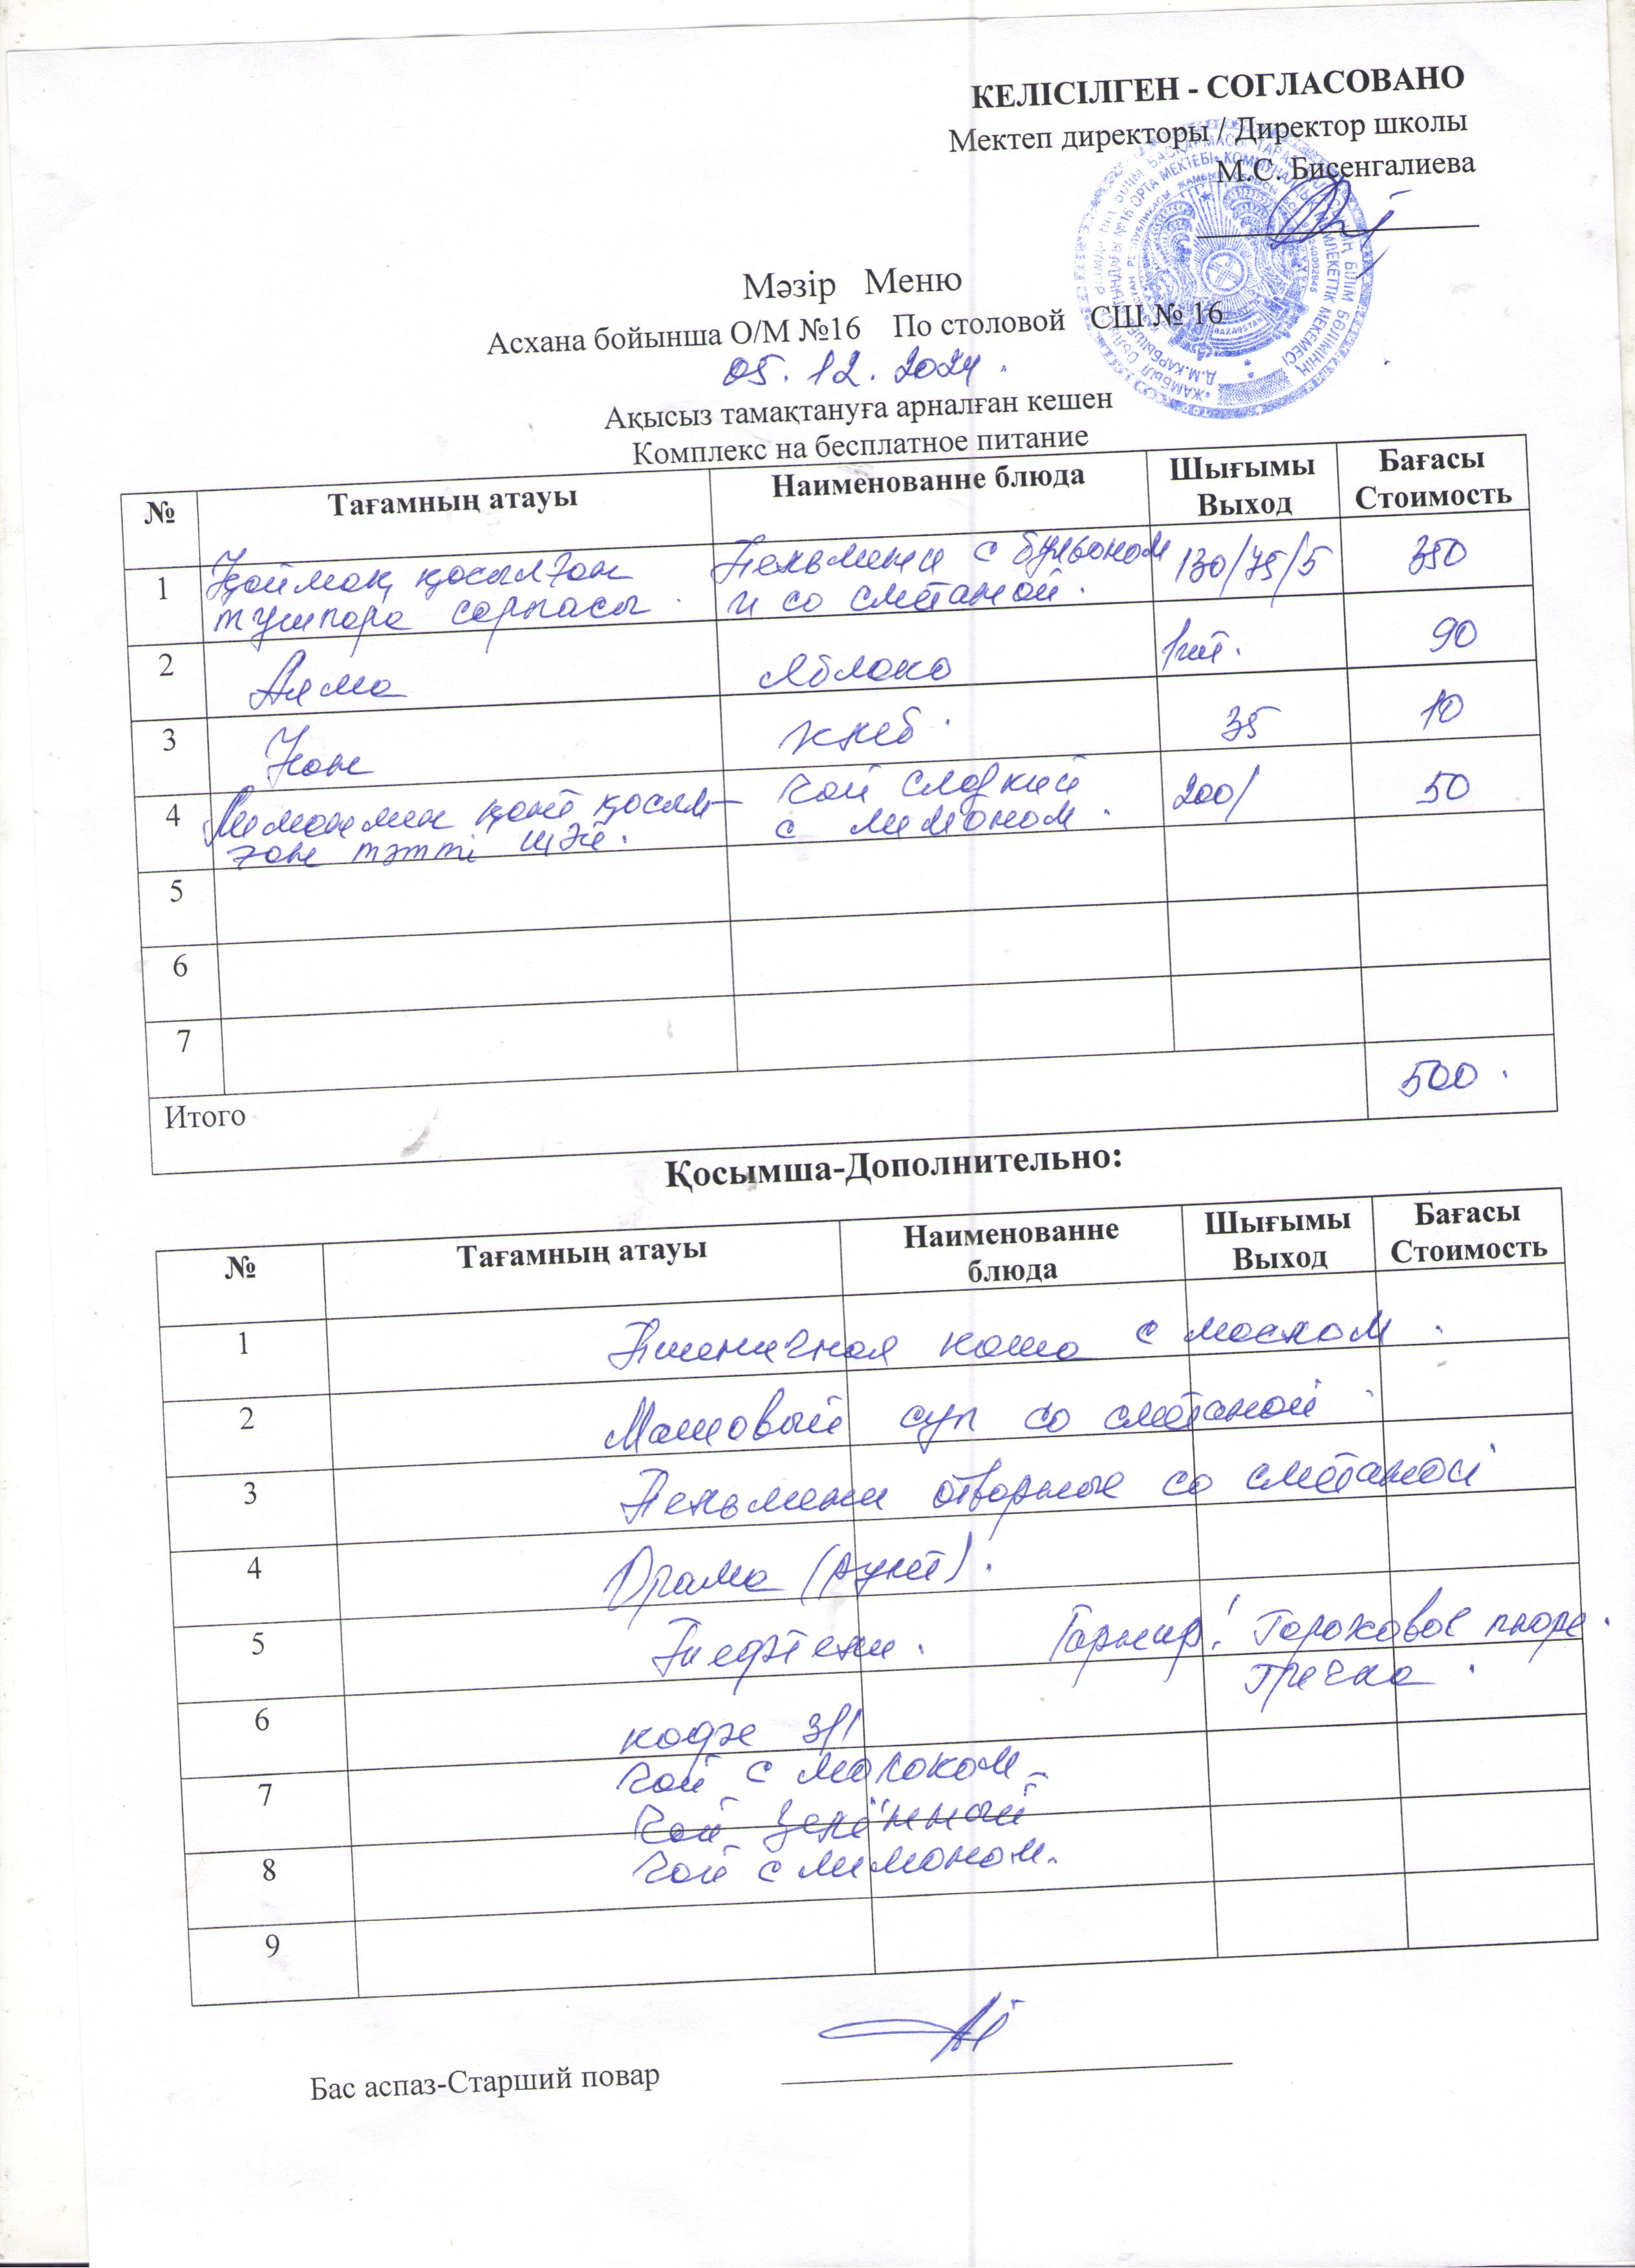 КЕЛІСІЛГЕН - СОГЛАСОВАНО
Мектеп директоры / Директор школы
М.С. Бисенгалиева
Мәзір Меню
Асхана бойынша О/М №16 По столовой СШ № 16
05.12.2024.
Ақысыз тамақтануға арналған кешен
Комплекс на бесплатное питание
№ Тағамның атауы Наименованне блюда Шығымы Выход Бағасы Стоимость
1 Қаймақ қосылған тушпара сорпасы. Пельмени с бульоном и со сметаной. 130/75/5 350
2 Алма Яблоко 1шт. 90
3 Нан хлеб. 35 10
4 қант қосыл-ған тәтті шәй. чай сладкий с лимоном. 200/ 50
5
6
7
Итого 500.
Қосымша-Дополнительно:
№ Тағамның атауы Наименованне блюда Шығымы Выход Бағасы Стоимость
1 Пшеничная каша с маслом.
2 Машовый суп со сметаной.
3 Пельмени отворные со сметаной
4 Драма
5 Тефтели. Гарнир: Гороховое пюре.
гречка.
6 кофе 3/1
7 чай с молоком
чай зелённый
8 чай с лимоном.
9
Бас аспаз-Старший повар